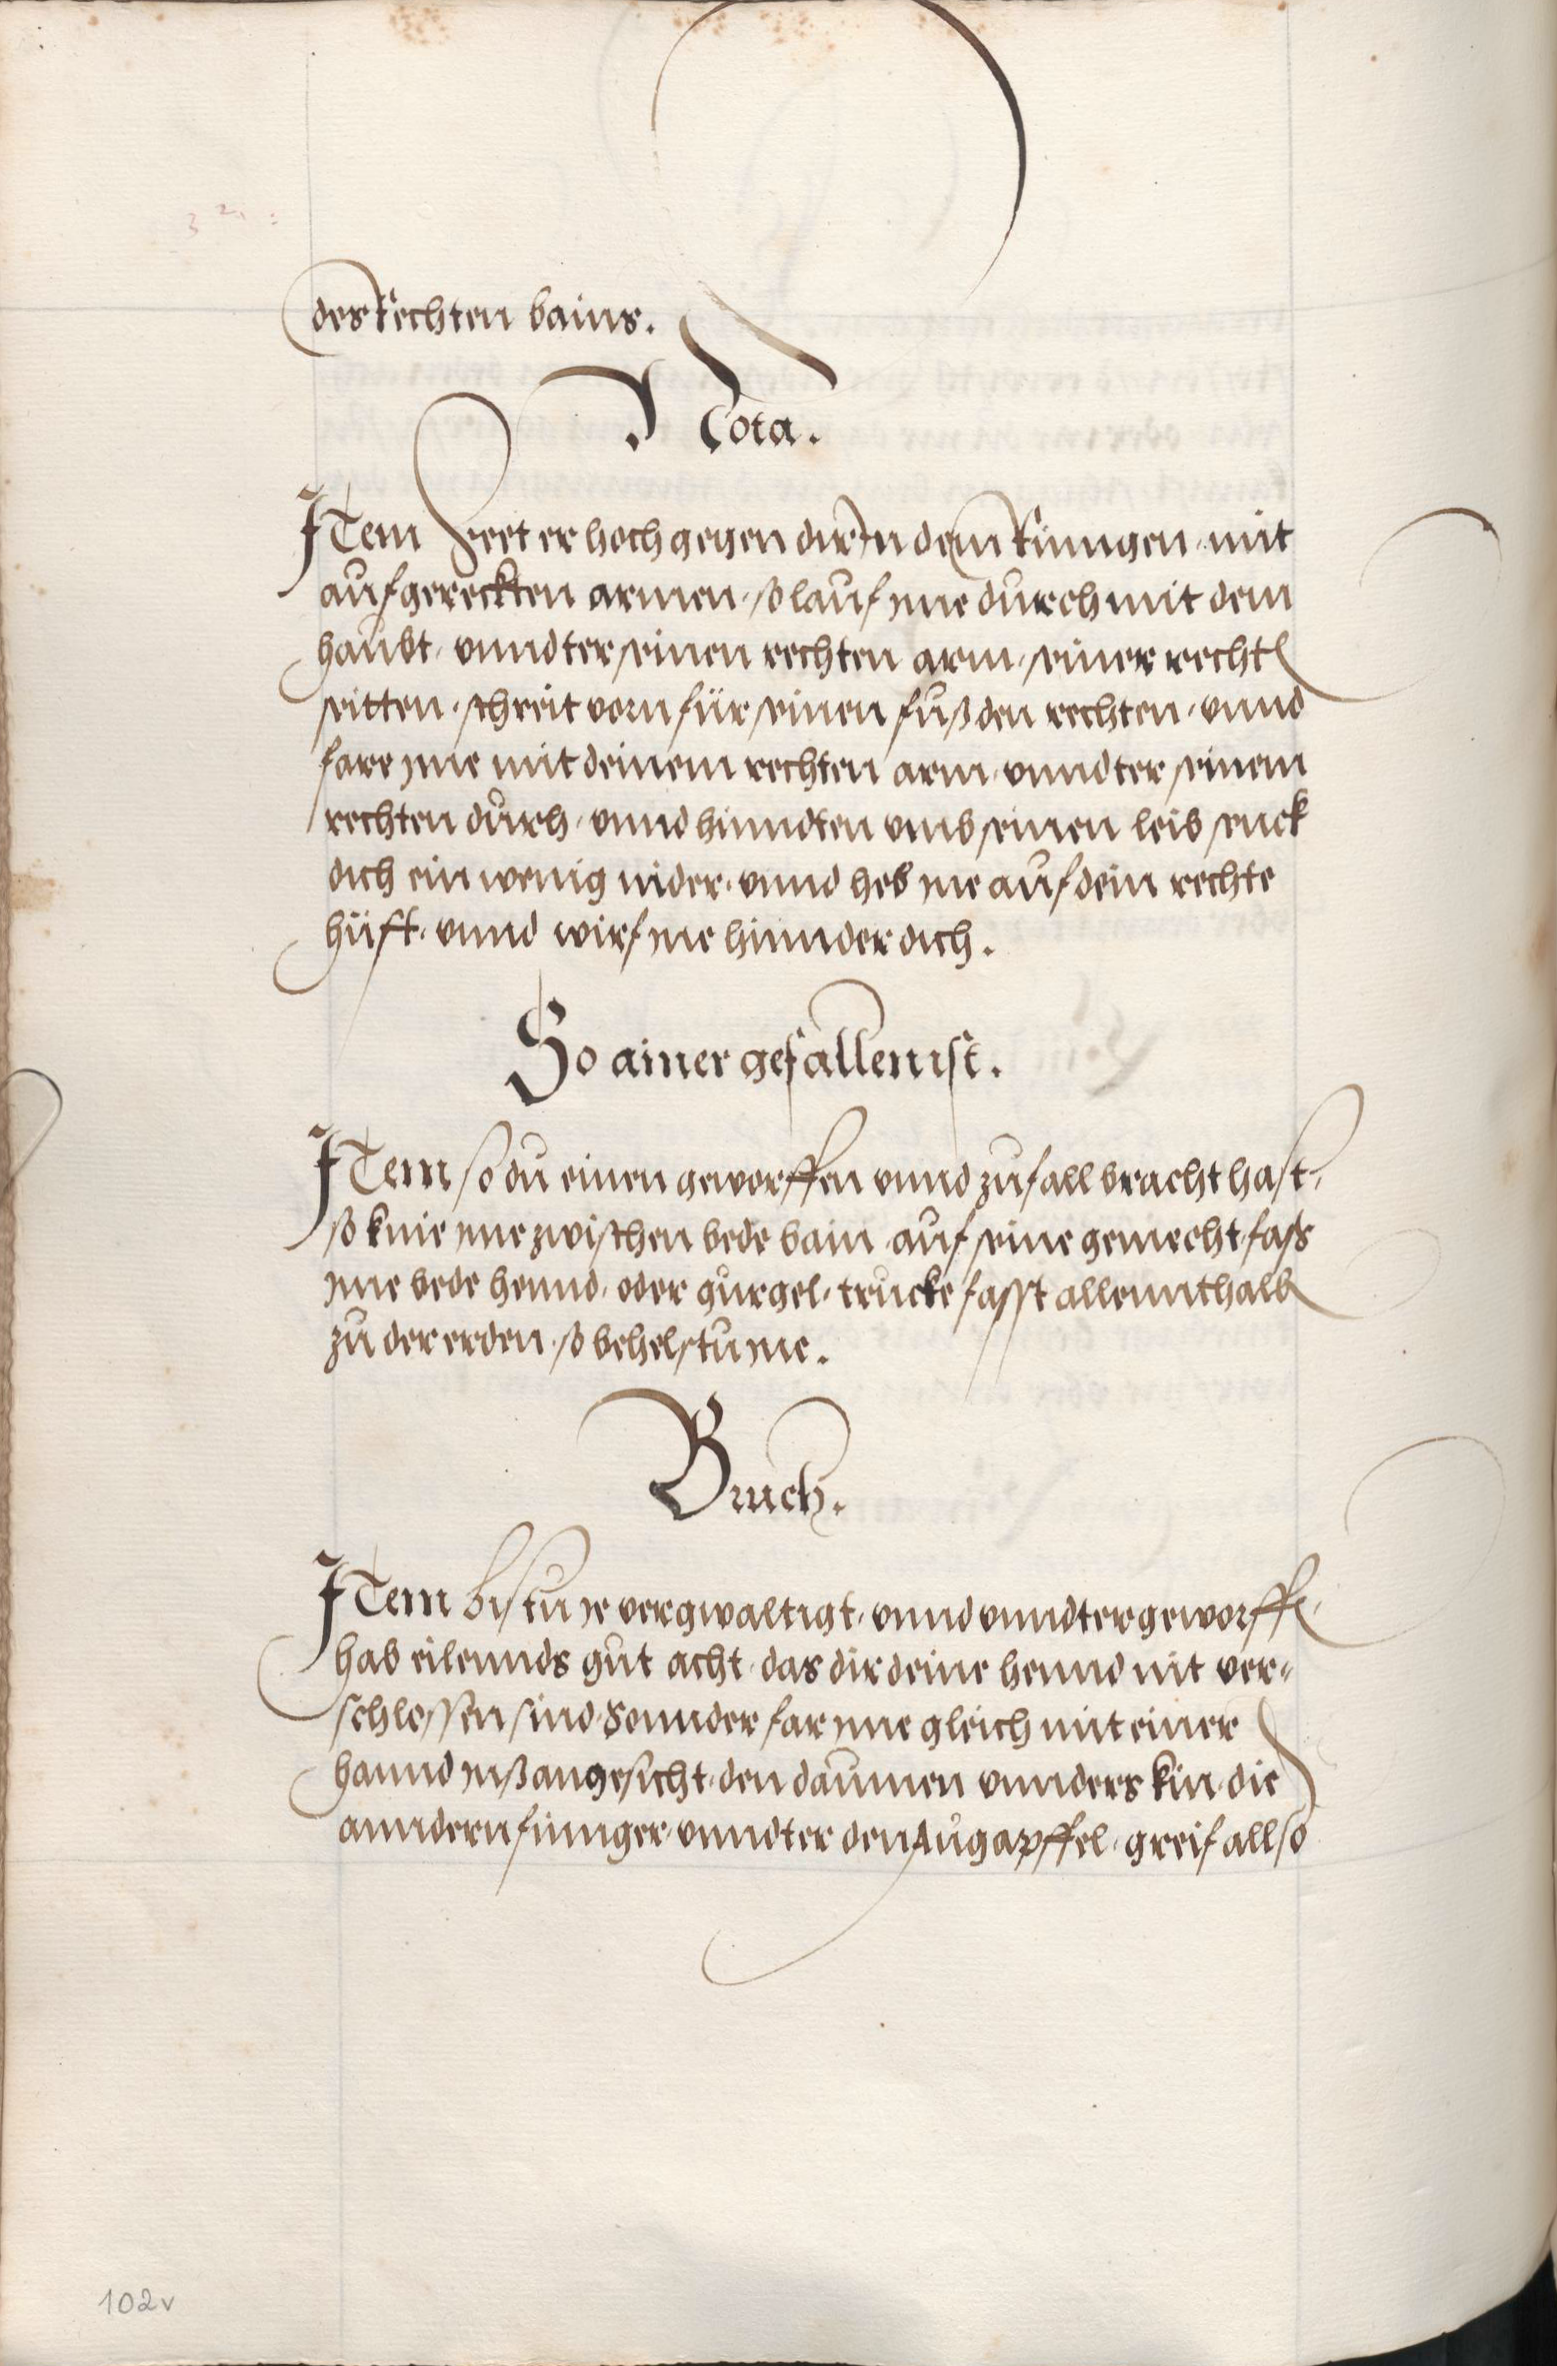 des Rechten bains.
Nota.
Item Feret er hoch gegen dir In dem Ringen, mit
aufgereckten armen, so lauf yme durch mit dem
haubt, vnndter seinen rechten arm, seiner rechtn
seitten, schreit vorn für seinen fuß den rechten, vnnd
fare yme mit deinem rechten arm, vnndter seinem
rechten durch, vnnd hinndten vmb seinen leib senck
dich ein wenig nider, vnnd heb yne auf dein rechte
hüfft, vnnd wirf yne hinnder dich.
So ainer gefallen ist.
Item so du einen geworffen vnnd zu fall bracht hast,
so knie yme zwischen bede bain auf seine gemecht, fass
yme bede hennd, oder gurgel, trucke fasst allennthalb
zu der erden, so behelstu yne.
Bruch.
Item bistu ye vergwaltigt, vnnd vnndtergeworffn,
hab eilennds gut acht, das dir deine hennd nit ver-
schlossen sind, Sonnder far yme gleich mit einer
hannd inß angesicht, den daumen vnnders kin, die
anndern finnger, vnndter den Augapffel, greif allso
102v